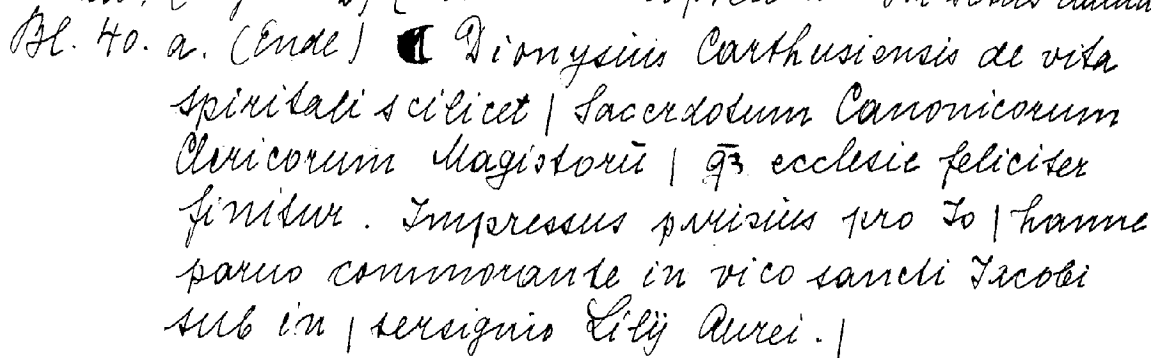 Bl. 40. a. (Ende) ¶ Dionysius Carthusiensis de vita
spiritali scilicet | Sacerdotum Canonicorum
Clericorum Magistorū | q̄ꝫ ecclesie feliciter
finitur. Impressus parisius pro Io | hanne
paruo commorante in vico sancti Jacobi
sub in | sersignio Lilij Aurei. |